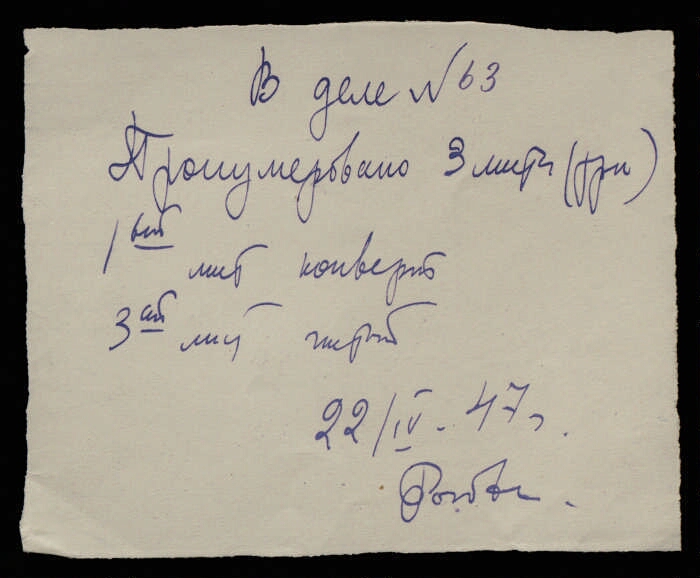 В деле N 63
Пронумеровано 3 листа (три)
1ый лист конверт
3ий лист чистый
22/IV - 47 г.